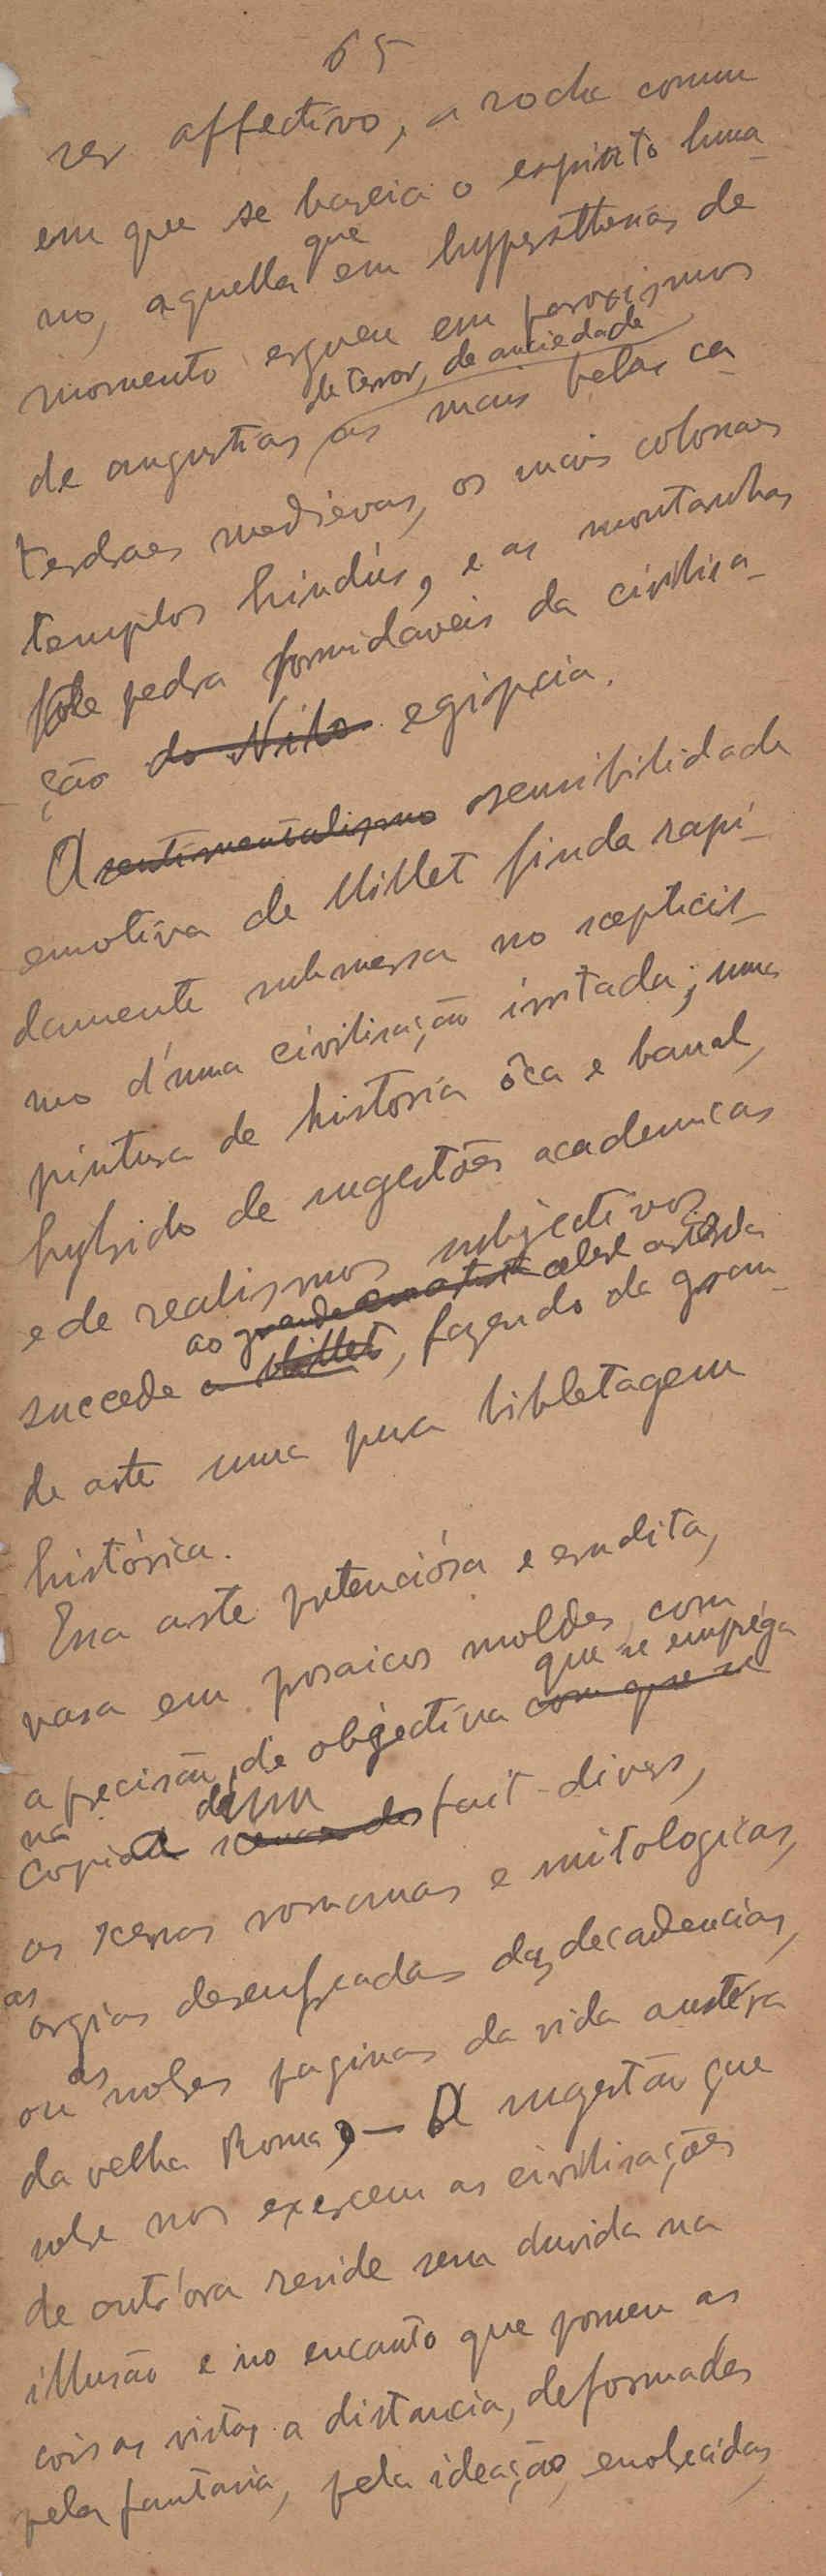 65
ser affectivo, a rocha comum
em que se baseia o espirito huma-
no, aquella que em hypersthenias de
momento ergueu em paroxismos
de terror, de anciedade
de angustias as mais belas ca-
tedraes medievas, os mais colossaes
templos hindús, e as montanhas
de pedra formidaveis da civilisa-
ção do Nilo egipcia.
A sentimentalismo sensibilidade
emotiva de Millet finda rapi-
damente submersa no scepticis-
mo d'uma civilisação irritada; uma
pintura de historia ôca e banal,
hybrido de sugestões academicas
e de realismos subjectivos
ao grande celebre artista
succede a Millet, fazendo da gran-
de arte uma pura bibletagem
histórica.
Essa arte pretenciósa e erudita,
vasa em prosaicos moldes, com
que se empréga
a precisão de objectiva com que se
na de um
copia scenas dos fait-divers,
as scenas romanas e mitologicas,
as orgias desenfreadas das decadencias,
ou as nobres paginas da vida austéra
da velha Roma, — A sugestão que
sobre nos exercem as civilisações
de outr'ora reside sem duvida na
illusão e no encanto que pomeu as
coisas vistas a distancia, deformadas
pela fantasia, pela ideação, enobrecidas,